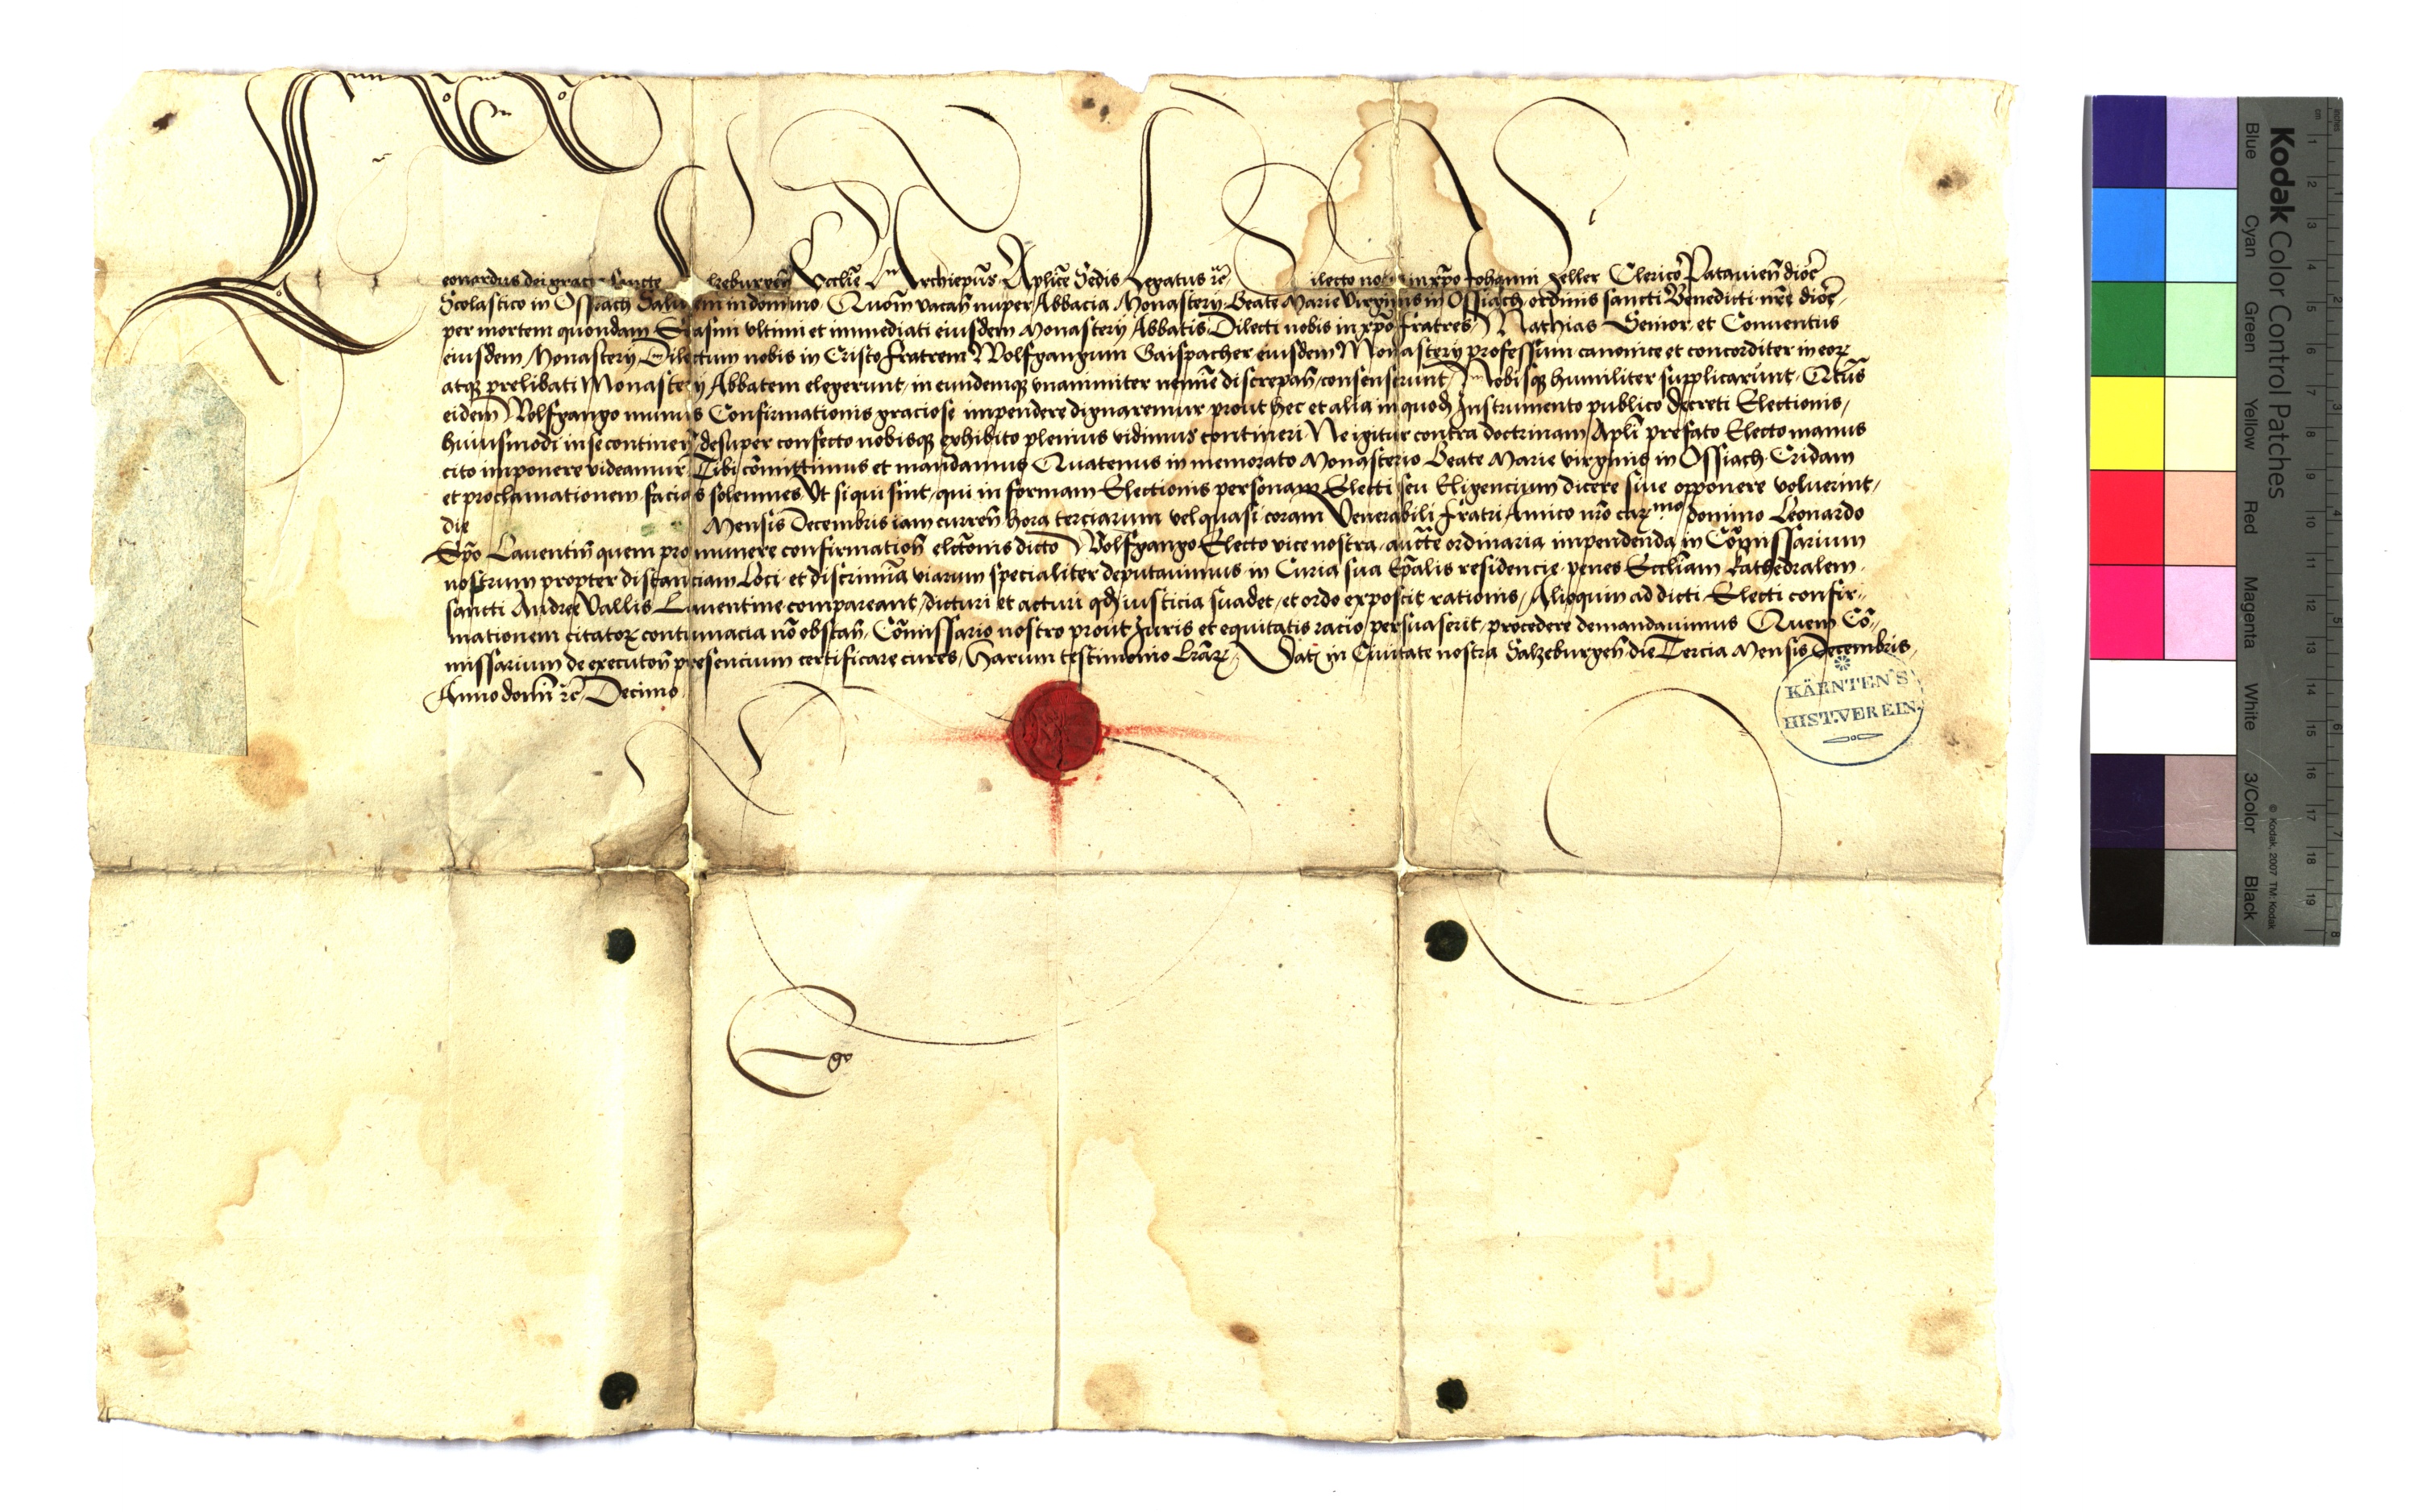 Leonardus dei gracia Sancte Salzeburgeñ Ecclie Archiepũs Aplice Sedis Legatus ꝛc̃ Dilecto nobis in xp̃o Johanni Zeller Clerico Patavieñ dioc̃
Scolastico in Ossiach Salutem in domino Quom̃ vacañ nuper Abbacia Monastery Beate Marie Virginis in Ossiach ordinis sancti Benedicti nr̃e dioc̃
per mortem quondam Erasmi vltimi et immediati eiusdem Monastery Abbatis Dilecti nobis in xp̃o fratres Mathias Senior et Conuentus
eiusdem Monastery Dilectum nobis in Cristo fratrem Wolfgangum Gaispacher eiusdem Monastery professum canonice et concorditer in eoꝝ
atqꝫ prelibati Monastery Abbatem elegerunt, in eundemqꝫ vnanimiter nemĩe discrepañ consenserunt, Nobisqꝫ humiliter supplicarunt, Qtũs
eidem Wolfgango munus Confirmationis graciose impendere dignaremur prout hec et alia in quodꝫ Instrumento publico decreti Electionis,
huiusmodi in se contineñ desuper confecto nobisqꝫ exhibito plenius vidimus contineri Ne igitur contra doctrinam Apli prefato Electo manus
cito imponere videamur Tibi cõmittimus et mandamus Quatenus in memorato Monasterio Beate Marie virginis in Ossiach Cridam
et proclamationem facias solemnes Vt si qui sint, qui in formam Electionis personam Electi seu Eligencium dicere siue opponere voluerint,
die Mensis Decembris iam curreñ hora terciarum vel quasi coram Venerabili fratri Amico nr̃o carᵐᵒ domino Leonardo
Ep̃o Lauentiñ quem pro munere confirmatioñ elctionis dicto Wolfgango Electo vice nostra auct̃e ordinaria impendenda in Cõmissarium
nostrum propter distanciam Loci et discrimina viarum specialiter deputauimus in Curia sua Ep̃alis residencie penes Eccliam Kathedralem
sancti Andree Vallis Lauentine compareant, dicturi et acturi qd iusticia suadet, et ordo exposcit rationis, Alioquin ad dicti Electi confir-
mationem citatoꝝ contumacia nõ obstañ, Cõmissario nostro prout Juris et equitatis racio persuaserit, procedere demandauimus Quem Cõ-
missarium de executoñ presencium certificare cures, Harum testimonio Lrãꝝ, Datꝫ in Ciuitate nostra Salzeburgeñ die Tercia Mensis Decembris,
Anno domñ ꝛc̃ Decimo
KÄRNTEN'S
HIST. VEREIN.
Kodak Color Control Patches
Blue Cyan Green Yellow Red Magenta White 3/Color Black
© Kodak, 2007 TM: Kodak
cm 1 2 3 4 5 6 7 8 9 10 11 12 13 14 15 16 17 18 19
inches 1 2 3 4 5 6 7 8